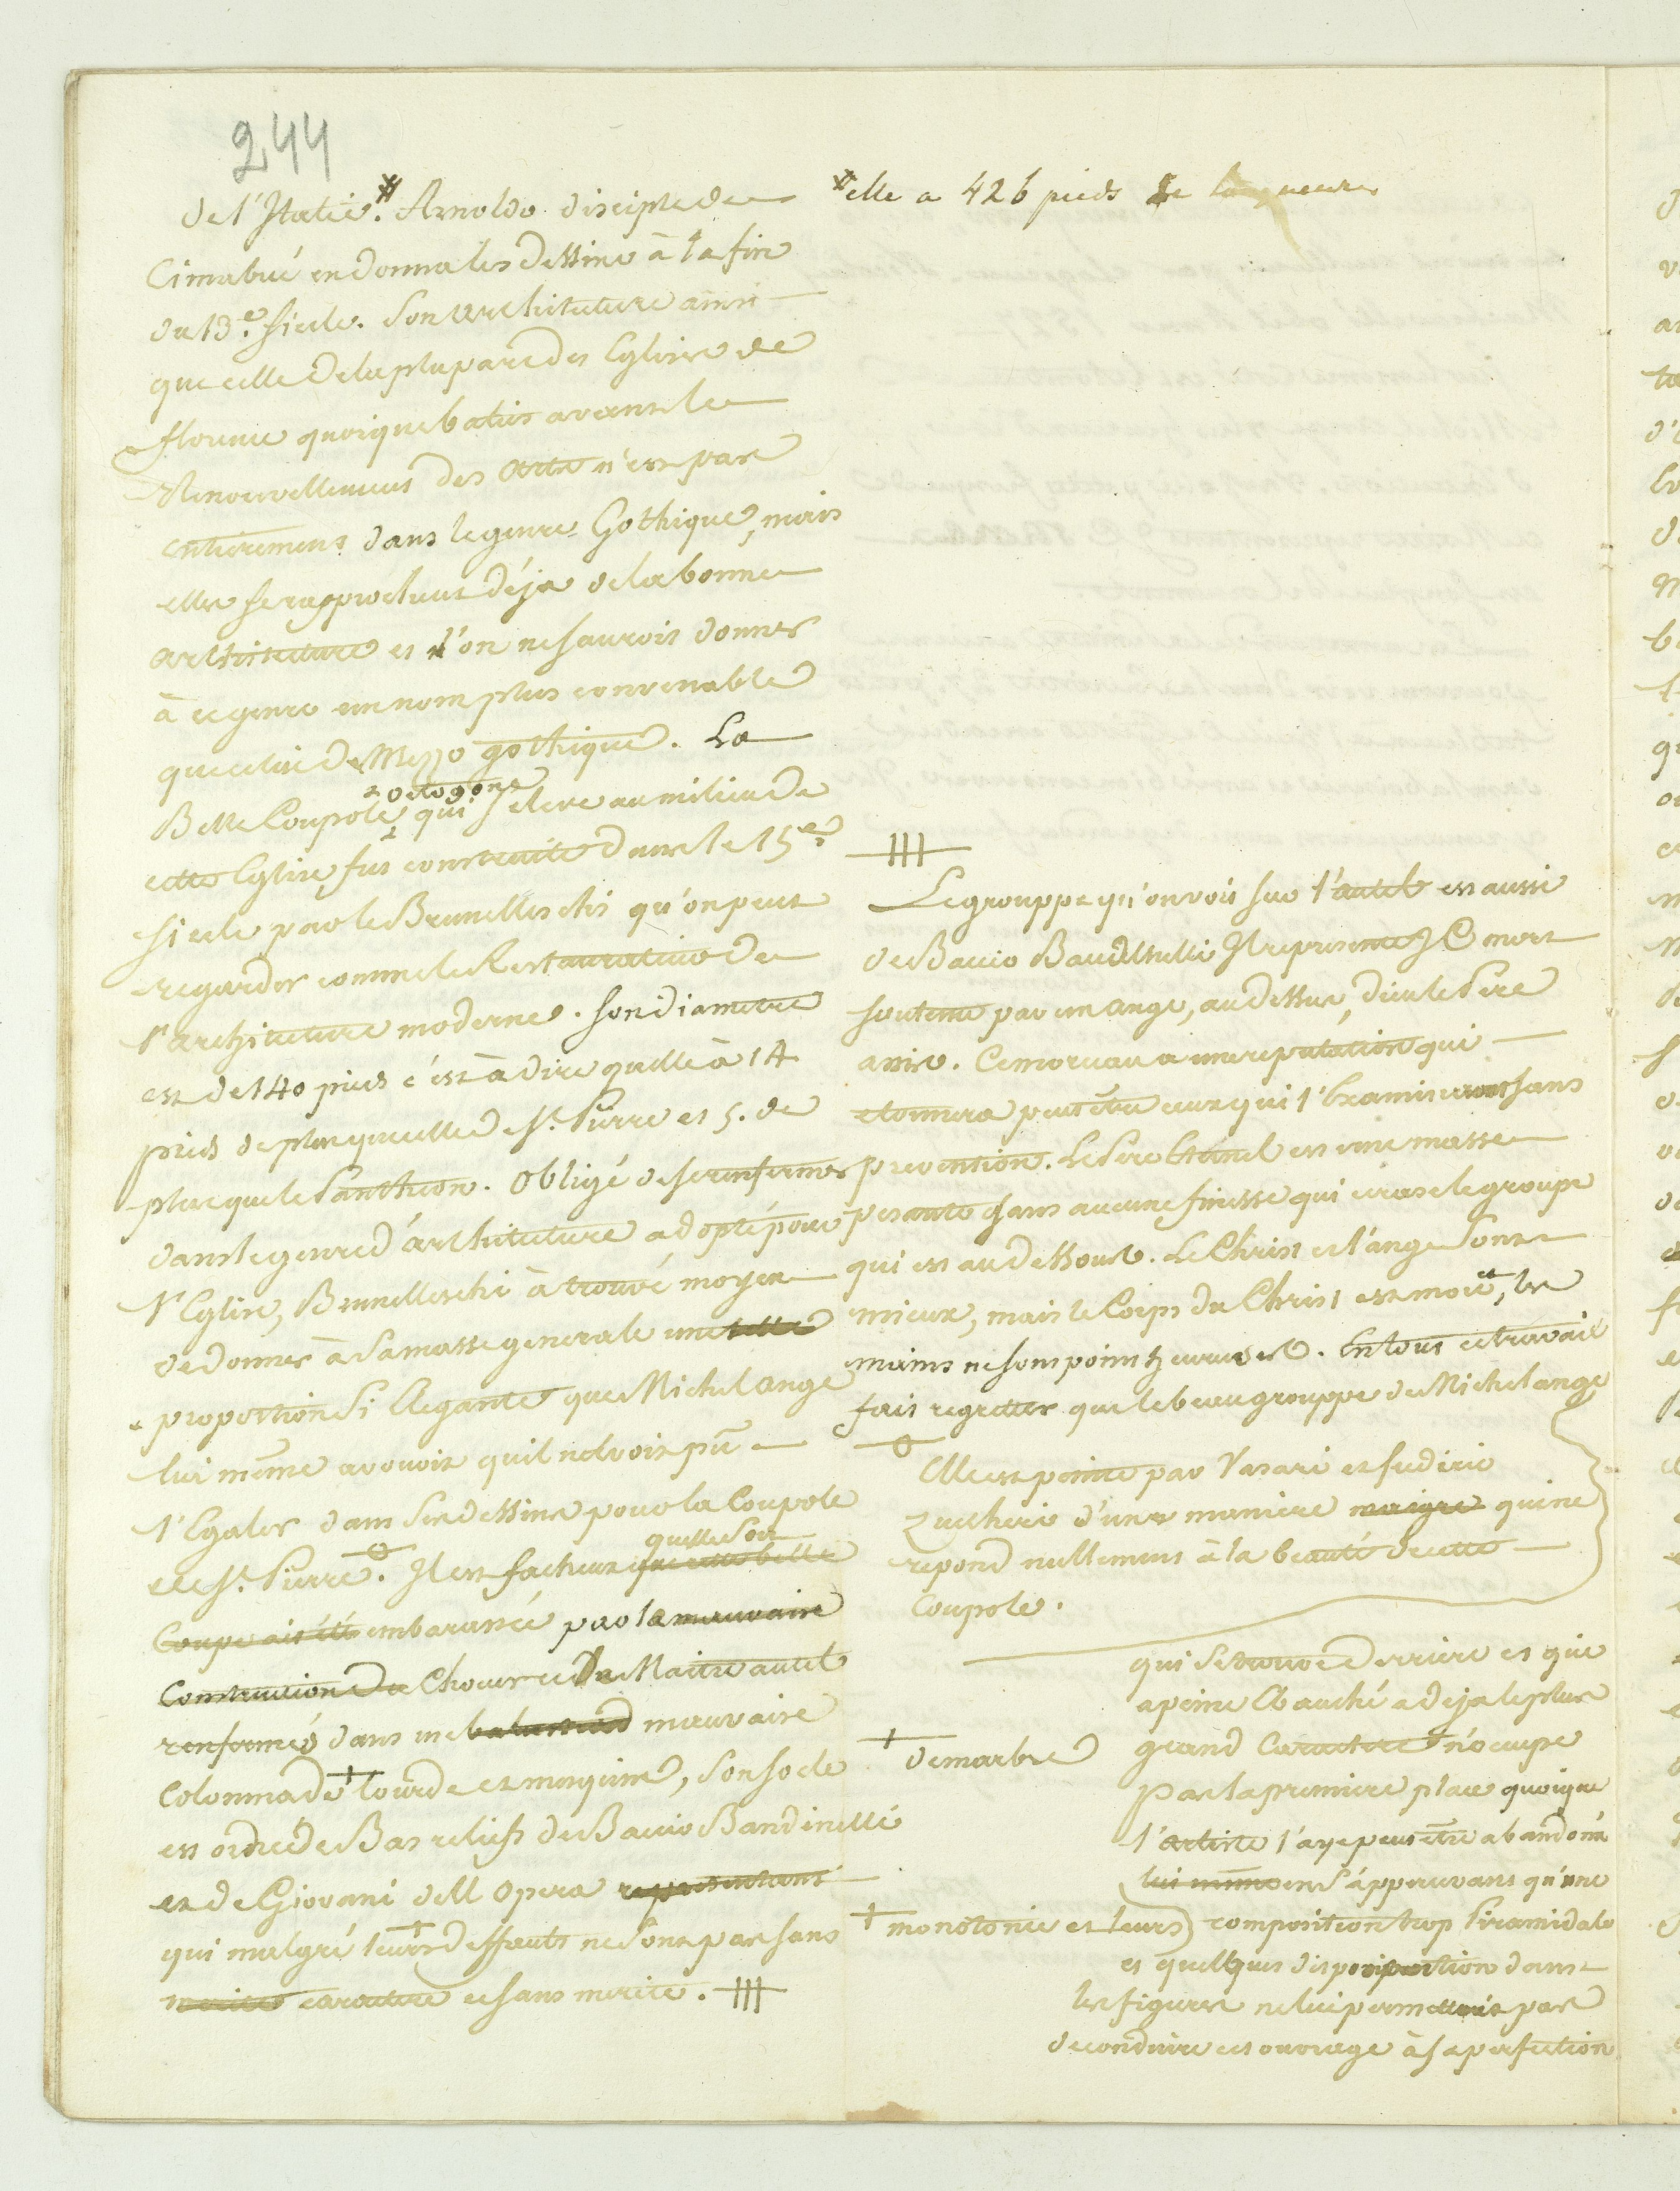 244
de l'Italie.# Arnoldo disciple de
Cimabué en donna les dessins à la fin
du 13.e siecle. Son architecture ainsi
que celle de la plupart des Eglises de
florence quoique baties avant le
Renouvellement des arts n'est pas
entierement dans le genre Gothique, mais
elles se raprochent déja de la bonne
architecture et l'on ne sauroit donner
à ce genre un nom plus convenable
que celui de Mezzo gothique. La
octogone
Belle Coupole qui s'eleve au milieu de
cette Eglise fut construite dans le 15e
siecle par le Brunelleschi qu'on peut
regarder comme le Restaurateur de
l'architecture moderne. son diametre
est de 140 pieds c'est à dire qu'elle à 14
pieds de plus que celle de St. Pierre et 5. de
plus que le Panthéon. Obligé de se renfermer
dans le genre d'architecture adopté pour
l'Eglise, Brunelleschi à trouvé moyen
de donner à sa masse generale une telle
proportion si Elegante que Michel ange
lui même avouoit qu'il ne devoit pû
l'Egaler dans ses dessins pour la Coupole
quelle soit
de St. Pierre. Il est facheux que cette belle
Coupe ait été embarassée par la mauvaise
Construction du Choeur et du Maitre autel
renfermés dans une balustrad mauvaise
Colonnade † lourde et mesquine, son socle
est ordné de Bas reliefs de Bacio Bandinelli
et de Giovani dell opera representant
qui malgré leurs † deffauts ne sont pas sans
merites caractere et sans merite. III
# elle a 426 pieds de longueur
III
Le grouppe qu'on voit sur l'autel est aussi
de Bacio Bandinelli Il represente J C mort
soutenu par un ange, au dessus, dieu le Pere
assis. Ce morceau a une reputation qui
etonnera peut être ceux qui l'Examineront sans
prevention. Le Pere Eternel est une masse
pesante sans aucune finesse qui ecrase le groupe
qui est au dessous. Le Christ et l'ange sont
mieux, mais le Corps du Christ est moû, les
mains ne sont point heureuses. En tout ce travail
fait regretter que le beau grouppe de Michel ange
O
Elle est peinte par Vasari et fuderic
Zucheri d'une maniere maigre qui ne
repond nullement à la beauté de cette
Coupole.
qui se trouve derriere et qui
a peine Ebauché a deja le plus
grand Caractere n'ocupe
† de marbre
Pas la premiere place quoique
l'artiste l'aye peut être abandoné
lui même en s'appercevant qu'une
† monotonie et leurs
composition trop Piramidale
et quelques disproportion dans
les figures ne lui permettoit pas
de conduire cet ouvrage à sa perfection